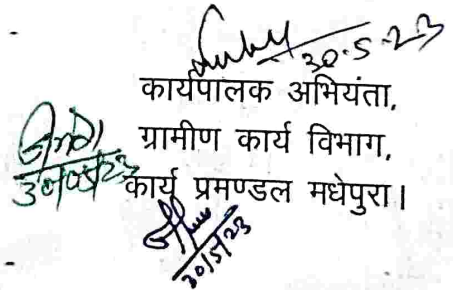 30.5.23
कार्यपालक अभियंता,
ग्रामीण कार्य विभाग,
30/05/23
कार्य प्रमण्डल मधेपुरा।
30/5/23